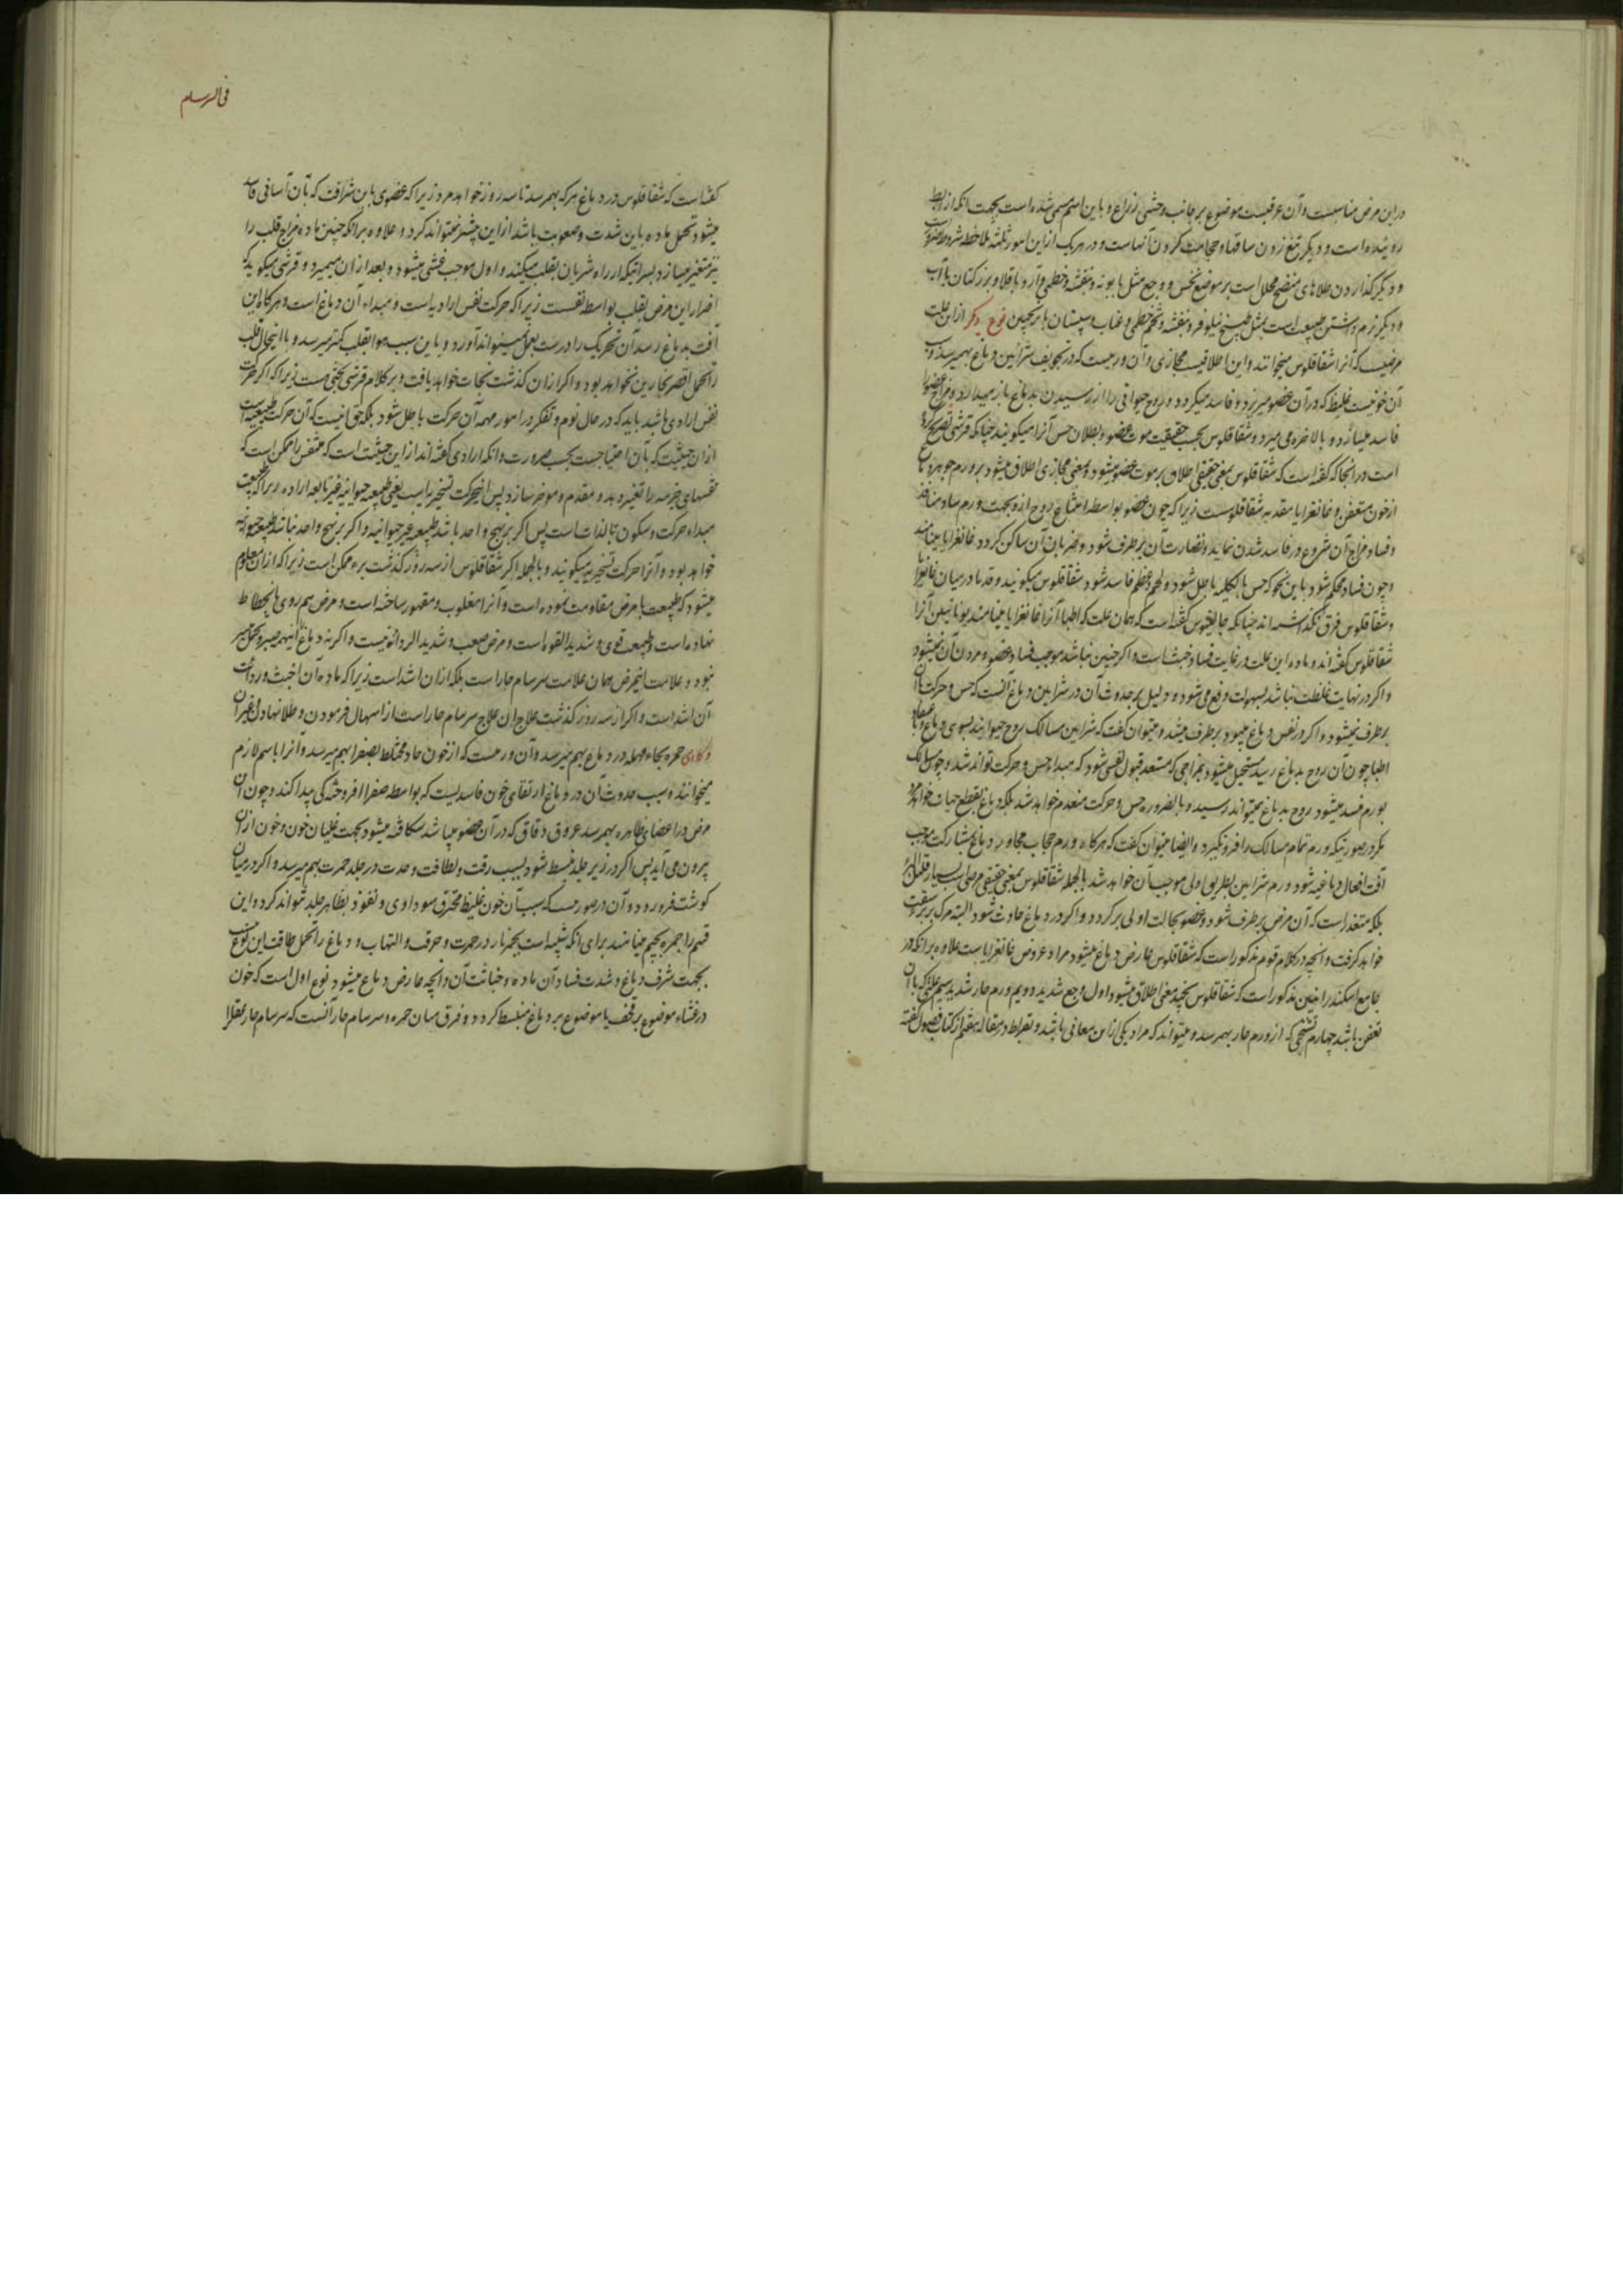 دراین مرض مناسبست وآن عرقیست موضوع بر جانب وحشی ذراع و باین اسم مسمی شده است بجهت انکه از ابط
روئیده است و دیکر تیغ زدن ساقها و حجامت کردن آنهاست و در هریک از این امور ثلثه ملاحظه شروط ضرور است
و دیکر کذاردن طلاهای منضج محلل است بر موضع نخس و وجع مثل بابونه و بنفشه و خطمی و آرد باقلا و بزر کتان با آب
و دیکر نرم داشتن طبیعت است بمثل طبیخ نیلوفر و بنفشه و تخم خطمی و عناب و سپستان با ترنجبین نوع دیکر از این علت
مرضیست که آنرا شقاقلوس میخوانند و این اطلاقیست مجازی وآن ورمیست که در تجویف شرائین دماغ بهم میرسد و سبب
آن خونیست غلیظ که در آن عضو میریزد و فاسد میکردد و روح حیوانی را از رسیدن بدماغ باز میدارد و مزاج عضو را
فاسد میسازد و بالاخره می میرد و شقاقلوس بحسب حقیقت موت عضو و بطلان حس آنرا میکویند چنانکه قرشی تصریح کرده
است در انجا که کفته است که شقاقلوس بمعنی حقیقی اطلاق بر موت عضو میشود و بمعنی مجازی اطلاق میشود بر ورم جوهر دماغ
از خون متعفن و غانغرایا مقدمه شقاقلوسست زیرا که چون عضو بواسطه امتناع روح از و بجهت ورم ساد منافذ
و فساد مزاج آن شروع در فاسد شدن نماید و نضارت آن برطرف شود و ضربان آن ساکن کردد غانغرایا مینامند
و چون فساد محکم شود باین نحو که حس بالکلیه باطل شود و لحم و عظم فاسد شود شقاقلوس میکویند و قدما در میان غانغرایا
و شقاقلوس فرق نکذاشته اند چنانکه جالینوس کفته است که همان علت که اطبا آنرا غانغرایا مینامند یونانیین آنرا
شقاقلوس کفته اند و ماده این علت در غایت فساد و خبث است و اکر چنین نباشد موجب فساد عضو و مردن آن نمیشود
و اکر در نهایت غلظت نباشد بسهولت دفع می شود و دلیل بر حدوث آن در شرائین دماغ آنست که حس و حرکت با آن
برطرف نمیشود و اکر در نفس دماغ میبود برطرف میشد و میتوان کفت که شرائین مسالک روح حیوانیند بسوی دماغ و باعتقاد
اطبا چون آن روح بدماغ رسید مستحیل میشود بمزاجی که مستعد قبول نفسی شود که مبداء حس و حرکت تواند شد و چون مسالک
بورم منسد میشود روح بدماغ نمیتواند رسید و بالضروره حس و حرکت منعدم خواهد شد بلکه دماغ بقطع حیات خواهد مرد
مکر در صورتیکه ورم تمام مسالک را فرو نکیرد و ایضا میتوان کفت که هرکاه ورم حجاب مجاور دماغ بمشارکت موجب
آفت افعال دماغیه شود ورم شرائین بطریق اولی موجب آن خواهد شد بالجمله شقاقلوس بمعنی حقیقی مرضی است بسیار قتال
بلکه متعذر است که آن مرض برطرف شود و عضو بحالت اولی برکردد و اکر در دماغ حادث شود البته مرک بر برء سبقت
خواهد کرفت و آنچه در کلام قوم مذکور است که شقاقلوس عارض دماغ میشود مراد عروض غانغرایاست علاوه بر انکه در
جامع اسکندرانیین مذکور است که شقاقلوس بچند معنی اطلاق میشود اول وجع شدید دویم ورم حار شدید سیم علتی که با آن
تعفن باشد چهارم تشنجی که از ورم حار بهم رسد و میتواند که مراد یکی از این معانی باشد و بقراط در مقاله هفتم از کتاب فصول کفته
فی السرسام
کفته است که شقاقلوس در دماغ هرکه بهم رسد تا سه روز خواهد مرد زیرا که عضوی باین شرافت که بآن آسانی فاسد
میشود تحمل ماده باین شدت و صعوبت باشد از این بیشتر نمیتواند کرد و علاوه بر انکه چنین ماده مزاج قلب را
نیز متغیر میسازد بسرایتیکه از راه شریان بقلب میکند و اول موجب غشی میشود و بعد از آن میمیرد و قرشی میکوید که
اضرار این مرض بقلب بواسطه تنفسست زیرا که حرکت نفس ارادیه است و مبداء آن دماغ است و هرکاه این
آفت بدماغ رسد آن تحریک را درست بعمل نمیتواند آورد و باین سبب هوا بقلب کمتر میرسد و با اینحال قلب
را تحمل اقصر بحارین نخواهد بود و اکر از آن کذشت نجات خواهد یافت و بر کلام قرشی بحثی هست زیرا که اکر حرکت
نفس ارادی باشد باید که در حال نوم و تفکر در امور مهمه آن حرکت باطل شود بلکه حق اینست که آن حرکت طبیعیست
از آن حیثیت که بآن احتیاجست بحسب ضرورت و انکه ارادی کفته اند از این حیثیت است که متنفس را ممکن است که
نفسهای جزئیه را تغییر دهد و مقدم و موخر سازد پس اینحرکت تسخیریه است یعنی طبیعیه حیوانیه غیر تابعه اراده زیرا که طبیعت
مبداء حرکت و سکون بالذات است پس اکر بر نهج واحد باشد طبیعیه غیر حیوانیه و اکر بر نهج واحد نباشد طبیعیه حیوانیه
خواهد بود و آنرا حرکت تسخیریه میکویند و بالجمله اکر شقاقلوس از سه روز کذشت برء ممکن است زیرا که از آن معلوم
میشود که طبیعت با مرض مقاومت نموده است و آنرا مغلوب و مقهور ساخته است و مرض هم روی بانحطاط
نهاده است و طبیعت قوی و شدید القوه است و مرض صعب و شدید الردائه نیست و اکر نه دماغ اینهمه صبر و تحمل نمیـ
نمود و علامت اینمرض همان علامت سرسام حار است بلکه از آن اشد است زیرا که ماده آن اخبث و رداءت
آن اشد است و اکر از سه روز کذشت علاج آن علاج سرسام حار است از اسهال فرمودن و طلا نهادن و غیر آن
و کاهی حمره بحاء مهمله در دماغ بهم میرسد و آن ورمیست که از خون حاد مختلط بصفرا بهم میرسد و آنرا باسم لازم
میخوانند و سبب حدوث آن در دماغ ارتقای خون فاسدیست که بواسطه صفرا افروختکی پیدا کند و چون آن
مرض در اعضای ظاهره بهم رسد عروق دقاق که در آن عضو میباشد شکافته میشود بجهت غلیان خون و خون از آن
بیرون می آید پس اکر در زیر جلد منبسط شود بسبب رقت و لطافت و حدت در جلد حمرت بهم میرسد و اکر در میان
کوشت فرو رود و آن در صورتیست که سبب آن خون غلیظ محترق سوداوی و نفوذ بظاهر جلد نتواند کرد و این
قسم را جمره بجیم مینامند برای انکه شبیه است بجمر نار در حمرت و حرقت و التهاب و دماغ را تحمل طاقت این نوع نیست
بجهت شرف دماغ و شدت فساد آن ماده و خباثت آن و انچه عارض دماغ میشود نوع اول است که خون
در غشاء موضوع بر قحف یا موضوع بر دماغ منبسط کردد و فرق میان حمره و سرسام حار آنست که سرسام حار عقل را